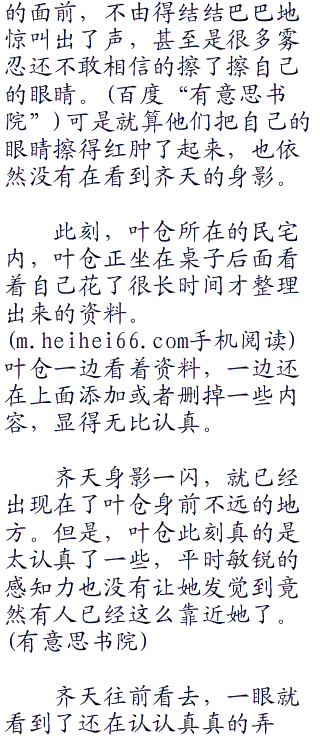 的面前，不由得结结巴巴地
惊叫出了声，甚至是很多雾
忍还不敢相信的擦了擦自己
的眼睛。(百度“有意思书
院”)可是就算他们把自己的
眼睛擦得红肿了起来，也依
然没有在看到齐天的身影。
此刻，叶仓所在的民宅
内，叶仓正坐在桌子后面看
着自己花了很长时间才整理
出来的资料。
(m.heihei66.com手机阅读)
叶仓一边看着资料，一边还
在上面添加或者删掉一些内
容，显得无比认真。
齐天身影一闪，就已经
出现在了叶仓身前不远的地
方。但是，叶仓此刻真的是
太认真了一些，平时敏锐的
感知力也没有让她发觉到竟
然有人已经这么靠近她了。
(有意思书院)
齐天往前看去，一眼就
看到了还在认认真真的弄